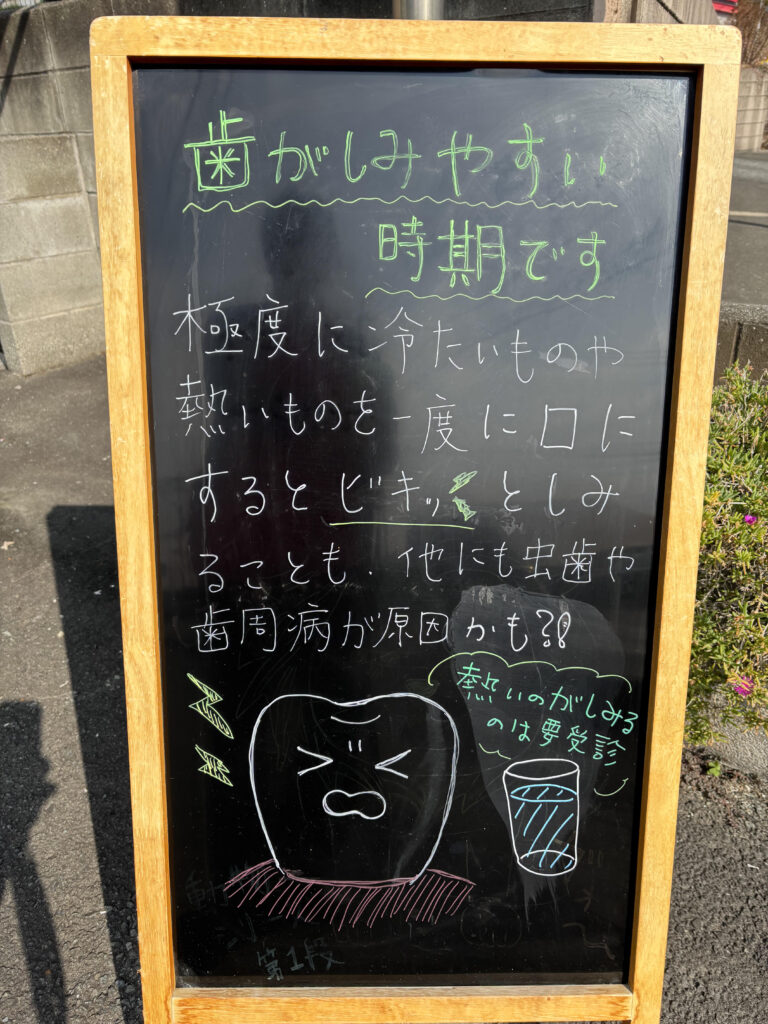 歯がしみやすい
時期です
極度に冷たいものや
熱いものを一度に口に
するとビキッとしみ
ることも.他にも虫歯や
歯周病が原因かも?!
熱いのがしみる
のは要受診
第1段